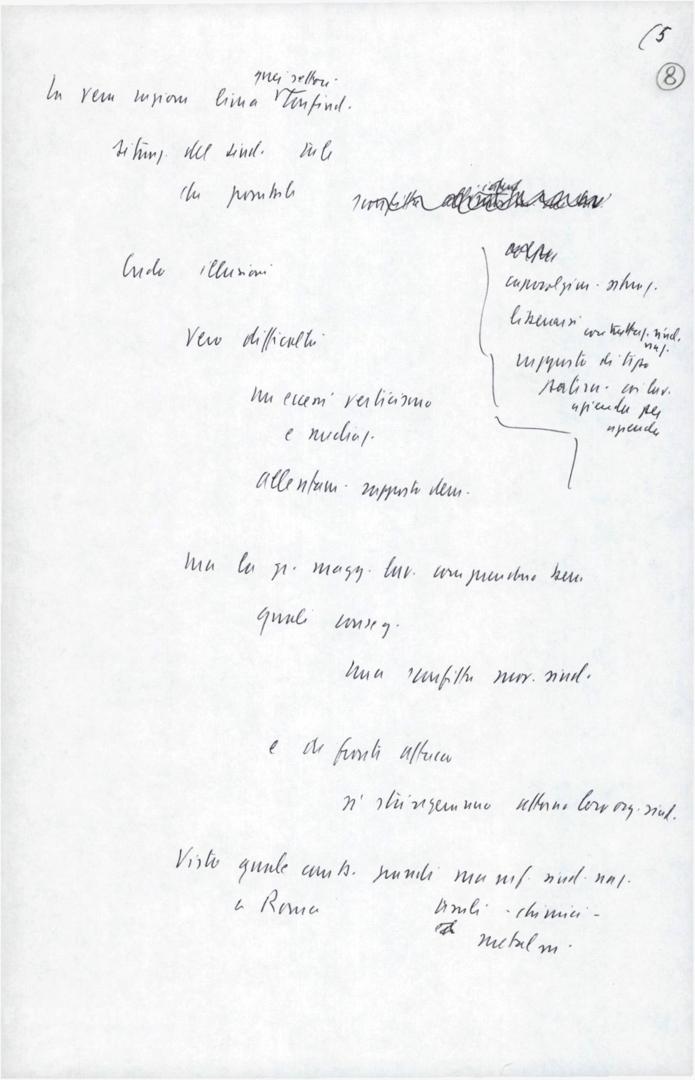 (5
8
quei settori.
La vera ragione linea Confind.
situaz. del sind. tale
che possibile sconfitta
colpa
Credo illusioni
capovolgim. situaz.
liberarsi contrattaz. sind. naz.
Vero difficoltà
rapporto di tipo
patern. con lav.
azienda per
azienda
un eccesso verticismo
e mediaz.
allentam. rapporto dem.
Ma la gr. magg. lav. comprendono bene
quali conseg.
una sconfitta mov. sind.
e di fronte attacco
si stringeranno attorno loro org. sind.
Visto quale comb. grandi manif. sind. naz.
a Roma tessili - chimici -
metalm.